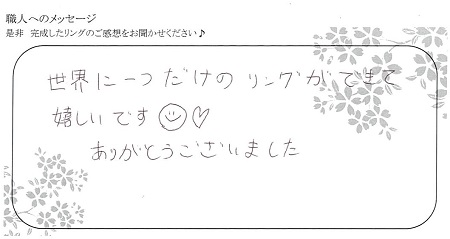 職人へのメッセージ
是非 完成したリングのご感想をお聞かせください♪
世界に一つだけの リングができて
嬉しいです☺♡
ありがとうございました